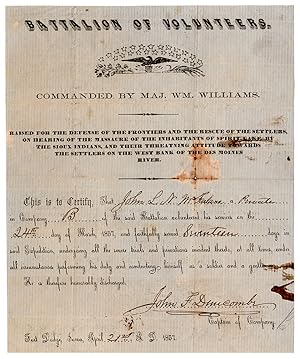 BATTALION OF VOLUNTEERS.
COMMANDED BY MAJ. WM. WILLIAMS.
RAISED FOR THE DEFENSE OF THE FRONTIERS AND THE RESCUE OF THE SETTLERS,
ON HEARING OF THE MASSACRE OF THE INHABITANTS OF SPIRIT LAKE BY
THE SIOUX INDIANS, AND THEIR THREATNING ATTITUDE TOWARDS
THE SETTLERS ON THE WEST BANK OF THE DES MOINES
RIVER.
This is to Certify, That John L. N. a Private
in Company "B" of the said Battalion entered his service on the
24th day of March, 1857, and faithfully served Seventeen days in
said Expedition, undergoing all the severe trials and privations incident thereto, at all times, under
all circumstances performing his duty and conducting himself as a soldier and a gentleman.
He is therefore honorably discharged.
John F. Duncombe
Captain of Company
Fort Dodge, Iowa, April 21st A. D. 1857.